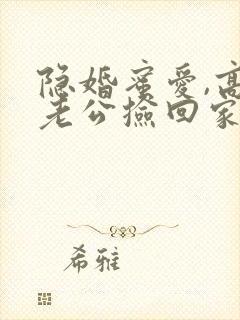 隐婚蜜爱,高
老公捡回家
希雅